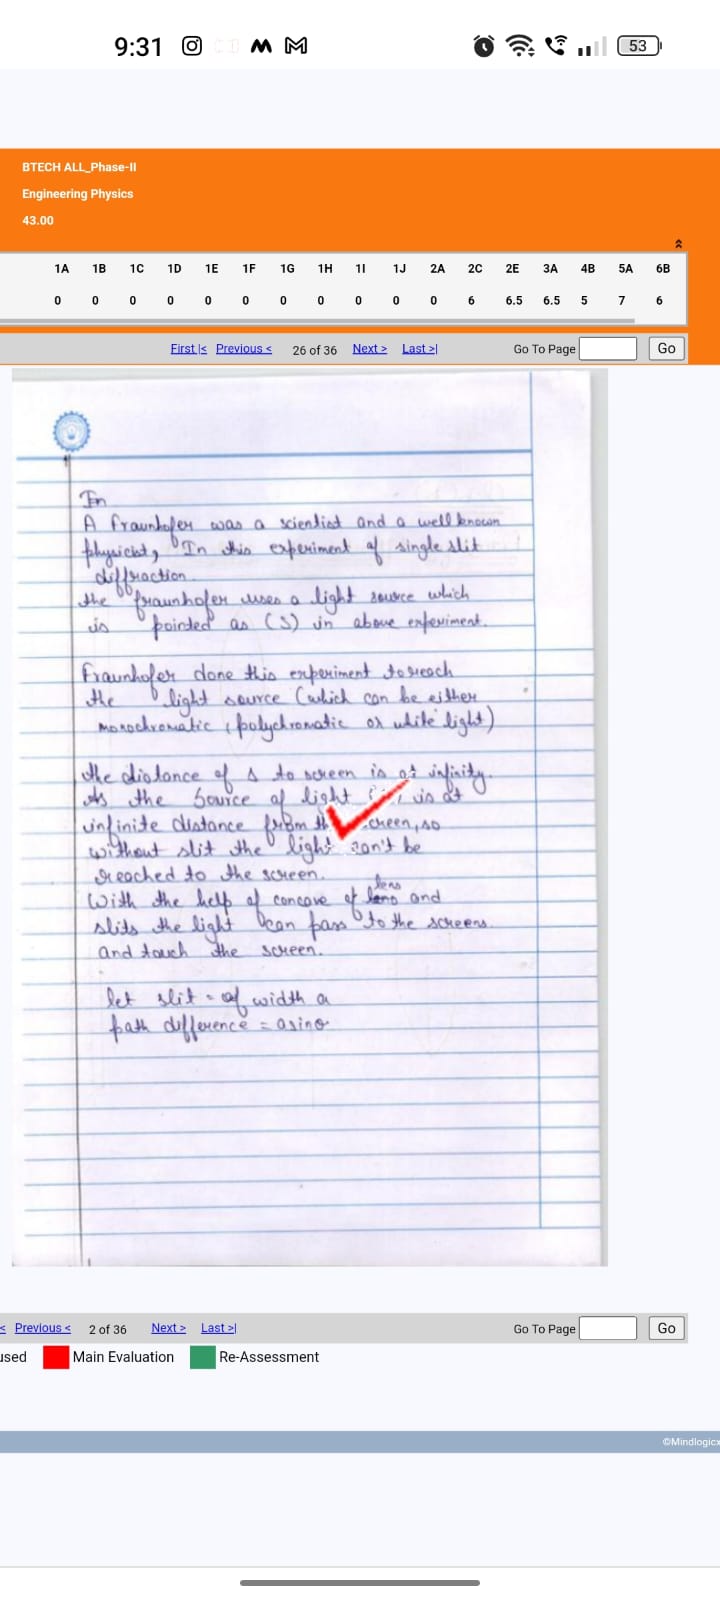 9:31
53
BTECH ALL_Phase-II
Engineering Physics
43.00
1A 1B 1C 1D 1E 1F 1G 1H 1I 1J 2A 2C 2E 3A 4B 5A 6B
0 0 0 0 0 0 0 0 0 0 0 6 6.5 6.5 5 7 6
First |< Previous < 26 of 36 Next > Last >| Go To Page Go
In
A fraunhofer was a scientist and a well known
physicist, In this experiment of single slit
diffraction
the fraunhofer uses a light source which
is pointed as (S) in above experiment.
Fraunhofer done this experiment to reach
the light source (which can be either
monochromatic, polychromatic or white light)
the distance of s to screen is at infinity.
As the source of light is at
infinite distance from the screen, so
without slit the light can't be
reached to the screen.
lens
With the help of concave of and
slits the light can pass to the screens
and touch the screen.
let slit = of width a
path difference = asinθ
< Previous < 2 of 36 Next > Last >| Go To Page Go
used Main Evaluation Re-Assessment
©Mindlogicx